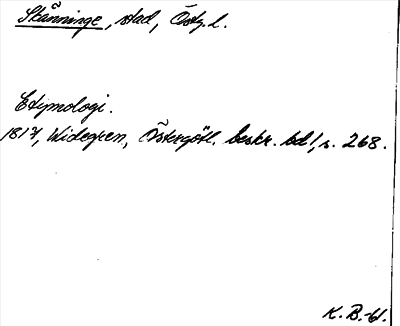 Skänninge, stad, Östg. l.
Etymologi.
1817, Widegren, Östergötl. beskr. bd 1, s. 268.
K. B. -61.